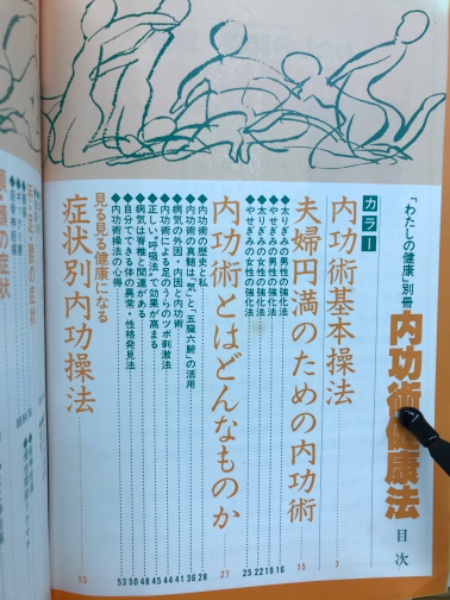 「わたしの健康」別冊
内功術健康法 目次
カラー
内功術基本操法 7
夫婦円満のための内功術 15
◆太りぎみの男性の強化法 16
◆やせぎみの男性の強化法 19
◆太りぎみの女性の強化法 22
◆やせぎみの女性の強化法 25
内功術とはどんなものか 27
◆内功術の歴史と私 28
◆内功術の真髄は“気”と「五臓六腑」の活用 36
◆病気の外因・内因と内功術 38
◆内功術による足のうらのツボ刺激法 41
◆正しい“呼吸法”で効果が高まる 44
◆病気は脊椎と関連がある 45
◆自分でできる体の異常・性格発見法 48
◆内功術操法の心得 50
53
見る見る健康になる
症状別内功操法 55